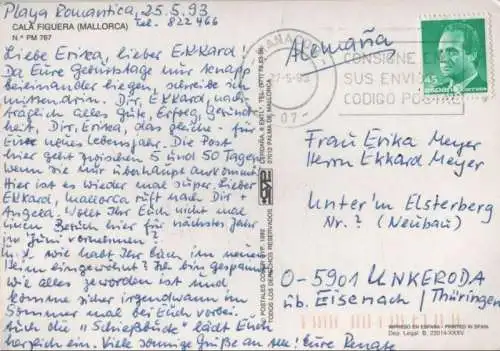 Playa Romantica, 25.5.93
Tel. 822466
CALA FIGUERA (MALLORCA)
N.º PM 767
Liebe Erika, lieber Ekkard!
Da Eure Geburtstage nur knapp
beieinander liegen, schreibe ich
mittendrin. Dir, Ekkard, nach-
träglich alles Gute, Erfolg, Gesund-
heit, Dir, Erika, das gleiche - für
Eure neues Lebensjahr. Die Post
hier geht zwischen 5 und 50 Tagen
wenn sie nur überhaupt ankommt.
Hier ist es wieder mal super. Lieber
Ekkard, Mallorca ruft nach Dir +
Angela. Wollt Ihr Euch nicht mal
einen Besuch hier für nächstes Jahr
zu "Juni" vornehmen?
Und wie habt Ihr Euch im neuen
Heim eingewöhnt? Ich bin gespannt
wie alles geworden ist und
komme sicher irgendwann im
Sommer mal bei Euch vorbei.
Auch die "Schießbude" lädt Euch
herzlich ein. Viele sonnige Grüße an Euch! Eure Renate
POSTALES 1992
TODOS LOS DERECHOS RESERVADOS
07012 PALMA DE MALLORCA
Alemaña
27-5-93
07-
CONSIGNE EN
SUS ENVIOS
CODIGO POSTAL
45
España Correos
Frau Erika Meyer
Herrn Ekkard Meyer
Unter'm Elsterberg
Nr.? (Neubau)
O-5901 UNKERODA
üb. Eisenach/Thüringen
IMPRESO EN ESPAÑA - PRINTED IN SPAIN
Dep. Legal: B. 22014-XXXV